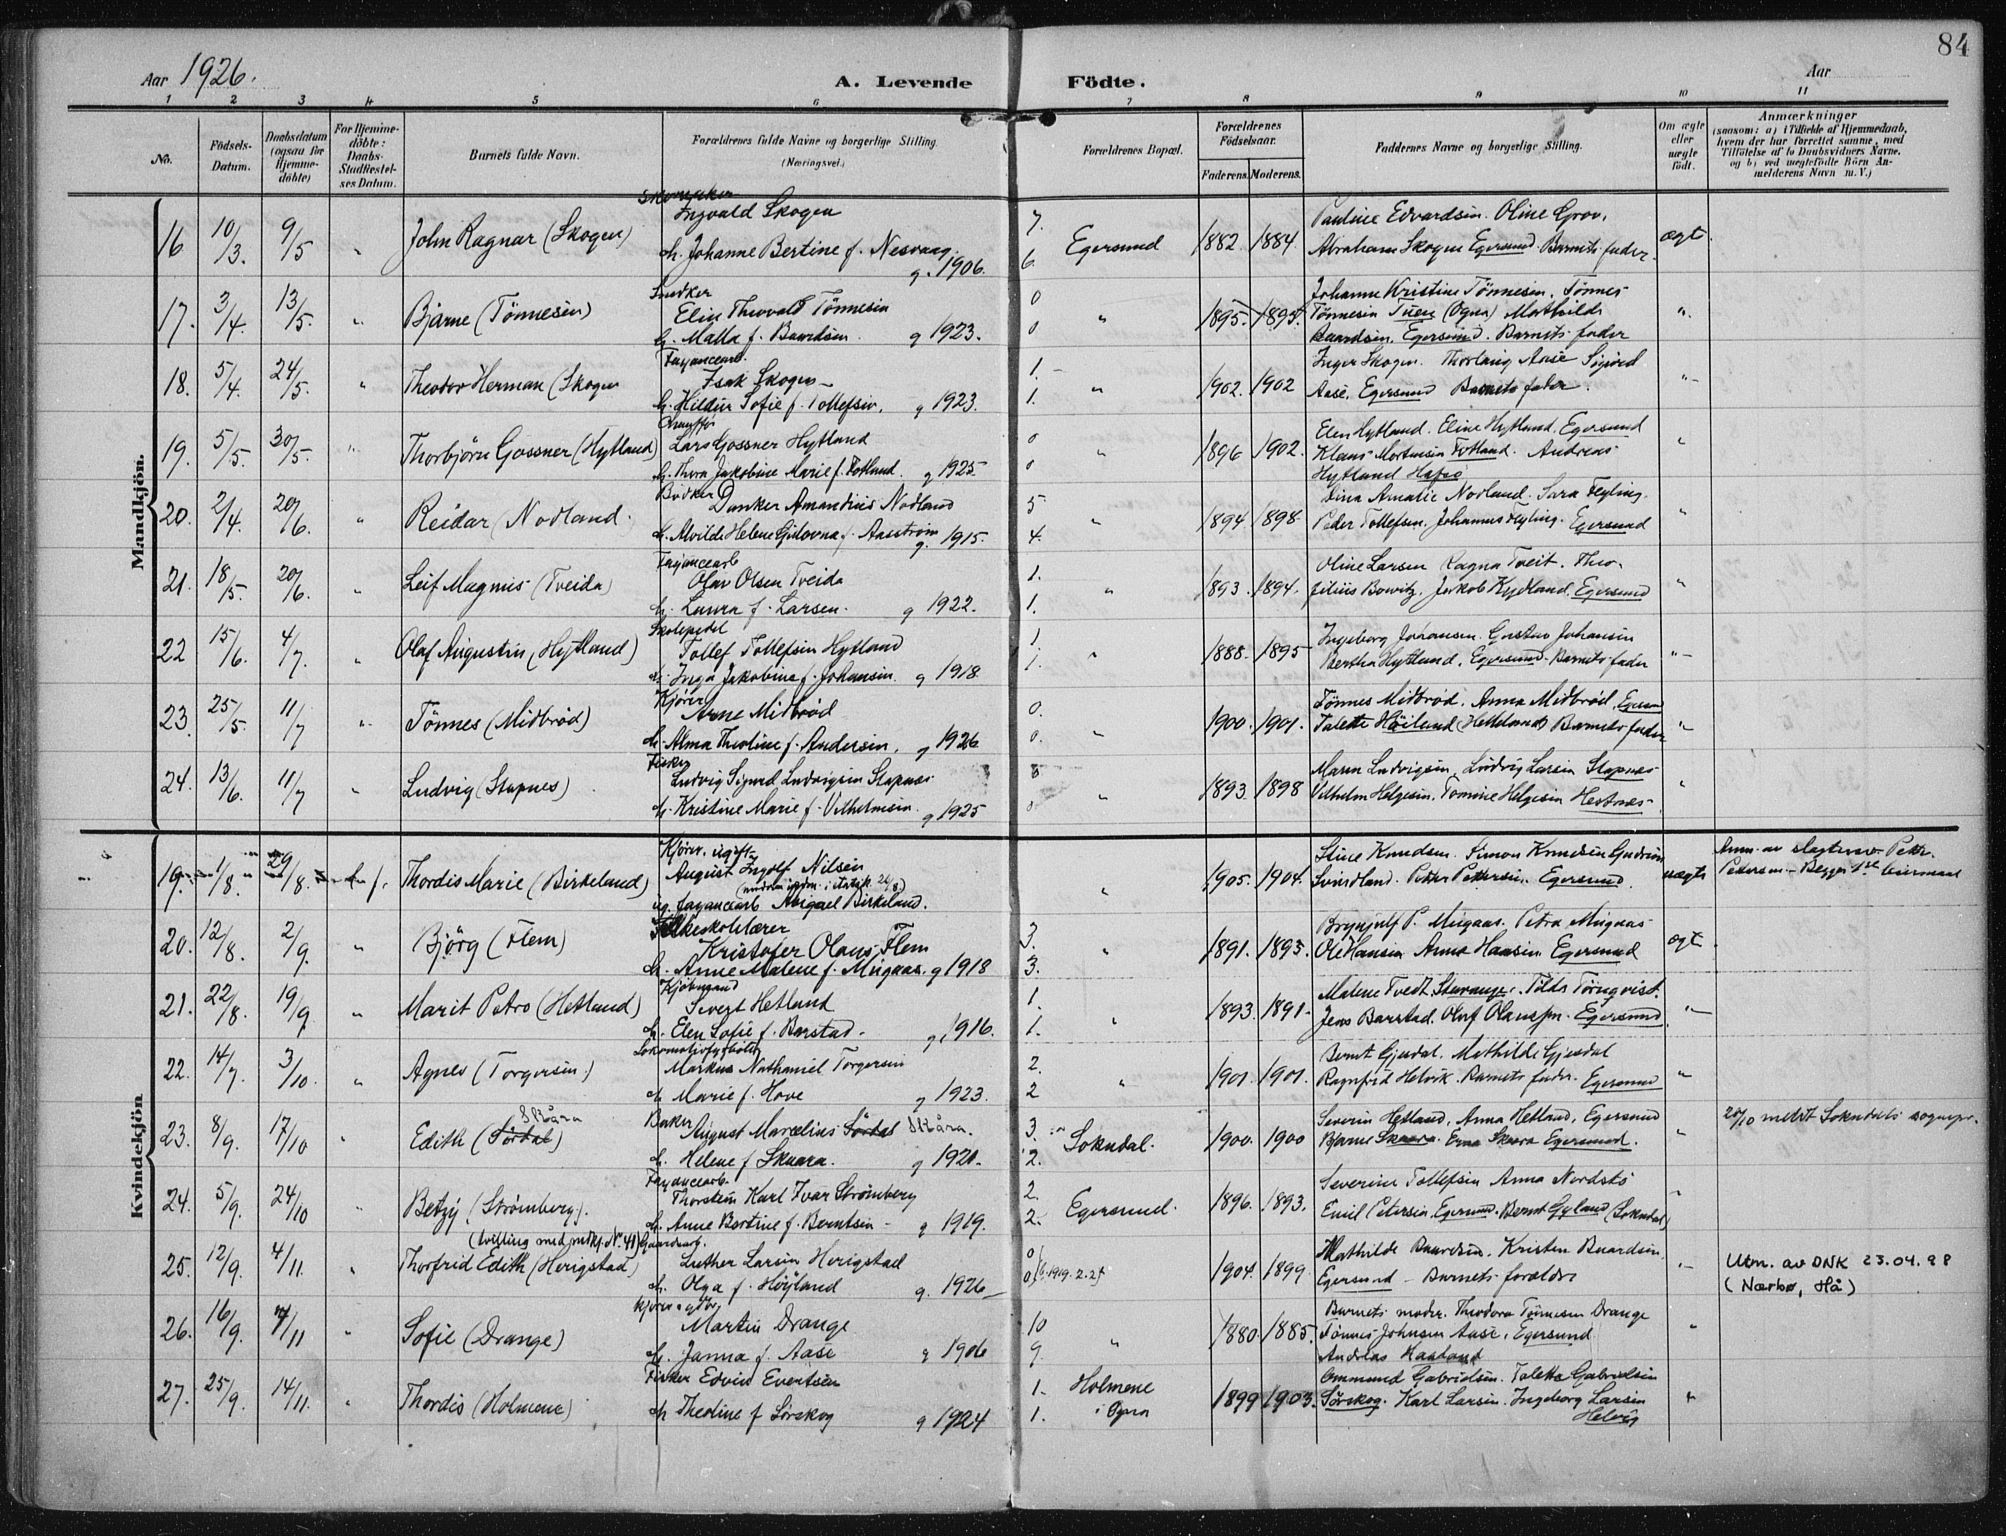 84
Aar 1926.
A. Levende Födte.
Aar
1 2 3 4 5 6 7 8 9 10 11
No.
Födsels-Datum.
Daabsdatum (ogsaa for Hjemme-döbte)
For Hjemme-döbte: Daabs-Stadfæstel-ses Datum.
Barnets fulde Navn.
Forældrenes fulde Navne og borgerlige Stilling.
(Næringsvei.)
Forældrenes Bopæl.
Forældrenes Födselsaar.
Faderens. Moderens.
Faddernes Navne og borgerlige Stilling.
Om ægte eller uægte födt.
Anmærkninger
(saasom: a) i Tilfælde af Hjemmedaab, hvem der har forrettet samme, med Tilföielse af to Daabsvidners Navne, og b) ved uægtefödte Börn An-melderens Navn m. V.)
Mandkjön.
Skomaker
16 10/3. 9/5 " John Ragnar (Skogen) Ingvald Skogen 7. Egersund 1882. 1884. Pauline Edvardsen. Oline Grov. ægt
h. Johanne Bertine f. Nesvaag. g. 1906. 6. Abraham Skogen Egersund. Barnets fader.
Snedker
17. 3/4. 13/5. " Bjarne (Tönnesen) Elin Thorvald Tönnesen 0 " 1895. 1895. Johanne Kristine Tönnesen. Tönnes
h. Malla f. Baardsen. g 1923. 0 Tönnesen Tuen (Ogna) Mathilde
Baardsen. Egersund. Barnets fader "
Fayancearb.
18. 5/4. 24/5. " Theodor Herman (Skogen Isak Skogen 1. " 1902. 1902 Inger Skogen. Thorlaug Aase Sigurd
h. Hildur Sofie f. Tollefsen. g 1923. 1. Aase. Egersund Barnets fader. "
Chauffør
19. 5/5. 30/5. " Thorbjörn Gossner (Hytland) Lars Gossner Hytland 0 " 1896 1902. Elen Hytland. Eline Hytland. Egersund
h. Thora Jakobine Marie f. Fotland. g 1925 0 Klaus Mortensen Fotland. Andreas
Hytland Hafsö "
Bödker
20. 2/4. 20/6. " Reidar (Nodland. Danker Amandius Nodland 5 " 1894. 1898. Dina Amalie Nodland. Sara Fegling.
h. Alvilde Helene f. Aasström g. 1915. 4. Peder Tollefsen. Johannes Fegling. Egersund "
Fayancearb
21. 18/5. 20/6. " Leif Magnus (Tveida) Olav Olsen Tveida 1. " 1893 1894. Oline Larsen Ragna Tveit. Theo-
h. Laura f. Larsen. g 1922. 1. filius Bowitz. Jakob Kydland. Egersund "
Skolepedel
22 15/6. 4/7. " Olaf Augustin (Hytland) Tollef Tollefsen Hytland 1. " 1888. 1895 Ingeborg Johansen. Gustav Johansen
h. Inga Jakobine f. Johansen. g 1918. 1. Bertha Hytland. Egersund. Barnets fader "
Kjörer
23. 25/5. 11/7 " Tönnes (Midbröd) Arne Midbröd 0. " 1900. 1901. Tönnes Midbröd. Anna Midbröd. Egersund
h. Alma Theoline f. Andersen. g 1926 0. Talette Höiland (Hetland) Barnets fader "
Fisker
24. 13/6. 11/7 " Ludvig (Stapnes) Ludvig Sigurd Ludvigsen Stapnes 0 " 1893. 1898 Maren Ludvigsen. Ludvig Larsen Stapnes
h. Kristine Marie f. Vilhelmsen. g 1925 0. Vilhelm Helgesen. Tomine Helgesen Hestnes. "
Kvindekjön
Kjörer. ugift
19. 1/8. 29/8. Thordis Marie (Birkeland) August Ingolf Nilsen " 1905. 1904. Stine Knudsen. Simon Knudsen Gudrun uægte Anm. av Petr.
ug. fayancearb Abigael Birkeland. Svindland. Petter Pettersen. Egersund. Pettersen – Begges 1ste leiermaal
Folkeskolelærer
20. 12/8. 2/9. " Bjørg (Flem) Kristofer Olaus Flem 3. " 1891. 1895. Brynjulf P. Mugaas. Petra Mugaas ægt.
h. Anne Malene f. Mugaas. g 1918 3. Ole Hansen Anna Hansen. Egersund
Kjöbmand
21. 22/8. 19/9. " Marit Petro (Hetland) Sivert Hetland 1. " 1893. 1891. Malene Tvedt Stavanger. Tilda Törnqvist.
h. Elen Sofie f. Barstad. g. 1916. 1. Jens Barstad. Olaf Olaussen. Egersund. "
Lokomotivfyrböter
22. 14/7. 3/10. " Agnes (Torgersen.) Markus Nathaniel Torgersen 2. " 1901. 1901. Bernt Gjesdal. Mathilde Gjesdal
h. Marie f. Hove g 1923. 2 Ragnfrid Helvik. Barnets fader. Egersund "
Skåra
23. 8/9. 17/10 " Edith (Sördal) Baker August Marcelius Sördal Skåra. 3. Sokndal. 1900. 1900 Severin Hetland, Anna Hetland, Egersund 20/10 medt Sokndals sognepr.
h. Helene f Skaara. g 1921. 2. Bjarne Skaara. Erna Skaara Egersund. "
Fayancearb.
24. 5/9. 24/10 " Betzy (Strömberg). Thorstein Karl Ivar Strömberg 2. Egersund. 1896. 1893. Severine Tollefsen Anna Nordstö
h. Anne Bertine f. Berntsen – g 1919. 2. Emil Petersen. Egersund. Bernt Gyland (Sokndal) "
(tvilling med mdkj. No. 41) Gaardsarb.
25. 12/9. 4/11. Thorfrid Edith (Herigstad) Luther Larsen Herigstad 0 1904. 1899. Mathilde Baardsen. Kristen Baardsen. Utm. av DNK 23.04.98
h. Olga f. Höyland g. 1926 0 Egersund – Barnets forældre (Nærbø, Hå)
26. 16/9. 7/11 " Sofie (Drange) Martin Drange 10 " 1880. 1885. Barnets moder. Theodora Tönnesen Drange
h. Janna f. Aase g 1906 9. Tönnes Johnsen Aase. Egersund "
Andreas Haaland
27. 25/9. 14/11. " Thordis (Holmene) Fisker Edvin Evertsen 1. Holmene 1899 1903. Ommund Gabrielsen. Talette Gabrielsen
h Theoline f Sörskog g 1924 1. i Ogna Sörskog. Karl Larsen. Ingeborg Larsen "
Helvig